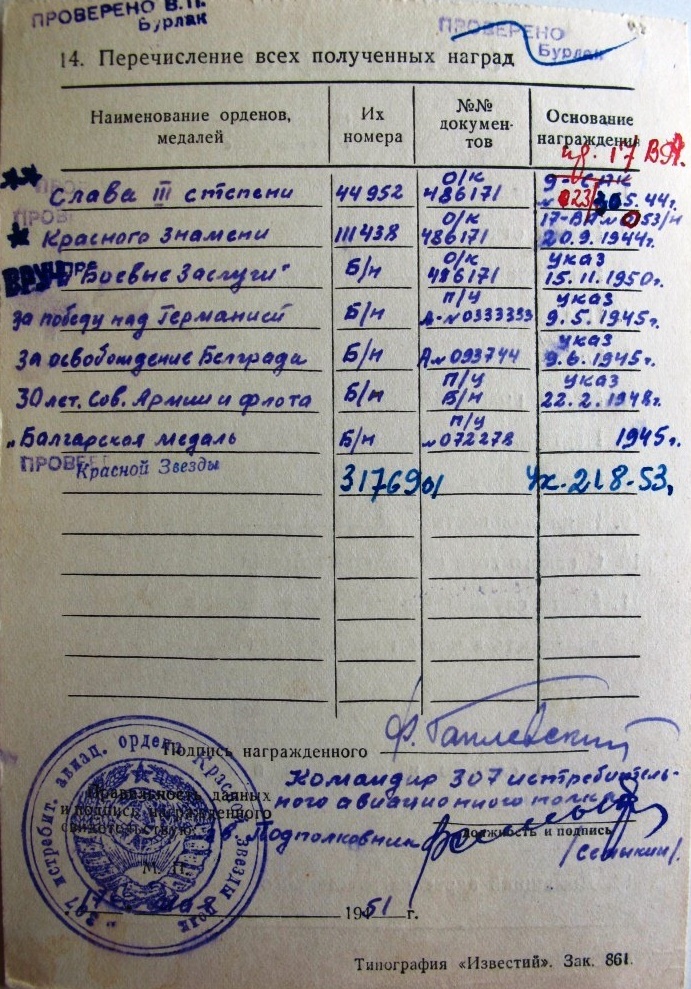 ПРОВЕРЕНО В.П.
Бурлак
ПРОВЕРЕНО
Бурлак
14. Перечисление всех полученных наград
Наименование орденов,
медалей
Их
номера
№№
докумен-
тов
Основание
награждения
пр. 17 ВА.
Слава III степени 44952 о/к 486171 5. 44г.
Красного Знамени 111438 о/к 486171 20.9.1944г.
ВРУЧ
"Боевые Заслуги" Б/н о/к 486171 указ 15.11.1950г.
За победу над Германией Б/н п/у А-№0333393 указ 9.5.1945г.
За освобождение Белграда Б/н А№093744 указ 9.6.1945г.
30 лет. Сов. Армии и флота Б/н п/у Б/н указ 22.2.1948г.
"Балгарская медаль Б/н п/у №072278 1945г.
Красной Звезды 3176901 Ук. 21.8-53,
Подпись награжденного
Командир 307 истребитель-
ного авиационного полка
Правильность данных
и подпись награжденного
свидетельствую:
гв. Подполковник
должность и подпись
/Семыкин/.
М. П.
1951 г.
307 истребит. авиац. ордена Красной Звезды полк
Типография «Известий». Зак. 861.